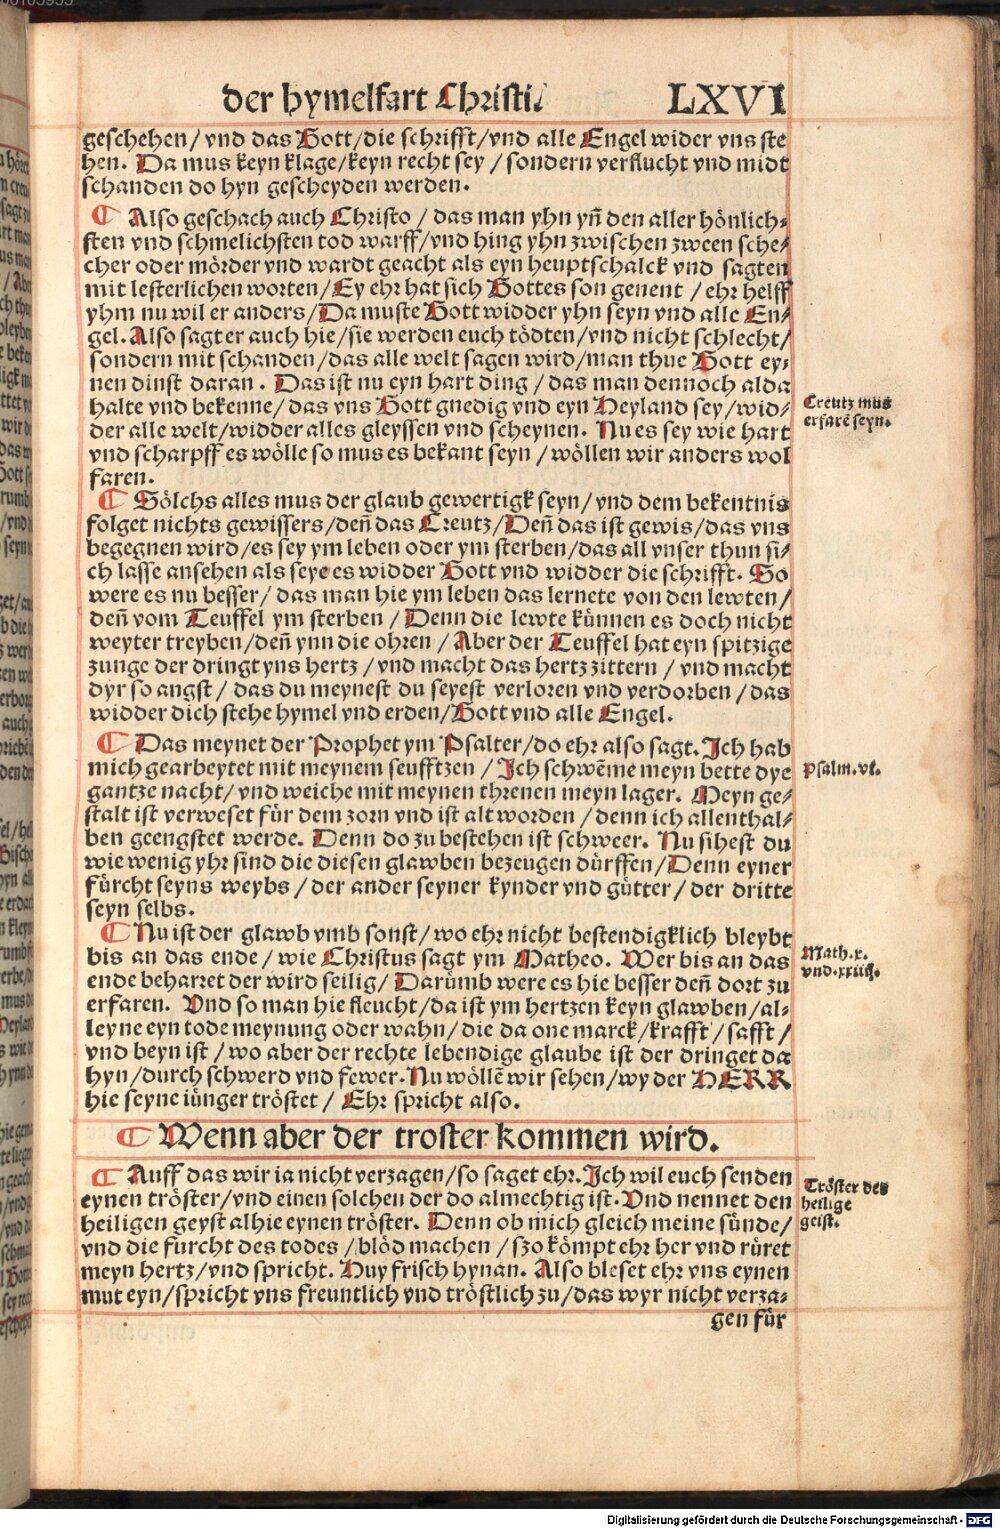 der hymelfart Christi. LXVI
geschehen/ vnd das Gott/die schrifft/vnd alle Engel wider vns ste
hen. Da mus keyn klage/keyn recht sey / sondern verflucht vnd midt
schanden do hyn gescheyden werden.
¶ Also geschach auch Christo / das man yhn yn̄ den aller hönlich⸗
sten vnd schmelichsten tod warff/vnd hing yhn zwischen zween sche⸗
cher oder mörder vnd wardt geacht als eyn heuptschalck vnd sagten
mit lesterlichen worten/Ey ehr hat sich Gottes son genent / ehr helff
yhm nu wil er anders/Da muste Gott widder yhn seyn vnd alle En⸗
gel. Also sagt er auch hie/sie werden euch tödten/vnd nicht schlecht/
sondern mit schanden/das alle welt sagen wird/man thue Gott ey⸗
nen dinst daran. Das ist nu eyn hart ding / das man dennoch alda
halte vnd bekenne/das vns Gott gnedig vnd eyn Heyland sey/wid⸗
der alle welt/widder alles gleyssen vnd scheynen. Nu es sey wie hart
vnd scharpff es wölle so mus es bekant seyn / wöllen wir anders wol
faren.
Creutz mus
erfarē seyn.
¶ Sölchs alles mus der glaub gewertigk seyn/ vnd dem bekentnis
folget nichts gewissers/den̄ das Creutz/Den̄ das ist gewis/das vns
begegnen wird/es sey ym leben oder ym sterben/das all vnser thun si⸗
ch lasse ansehen als seye es widder Gott vnd widder die schrifft. So
were es nu besser/ das man hie ym leben das lernete von den lewten/
den̄ vom Teuffel ym sterben / Denn die lewte künnen es doch nicht
weyter treyben/den̄ ynn die ohren / Aber der Teuffel hat eyn spitzige
zunge der dringt yns hertz / vnd macht das hertz zittern / vnd macht
dyr so angst / das du meynest du seyest verloren vnd verdorben / das
widder dich stehe hymel vnd erden/Gott vnd alle Engel.
¶ Das meynet der Prophet ym Psalter/do ehr also sagt. Ich hab
mich gearbeytet mit meynem seufftzen / Ich schwēme meyn bette dye
gantze nacht/ vnd weiche mit meynen threnen meyn lager. Meyn ge⸗
stalt ist verweset für dem zorn vnd ist alt worden / denn ich allenthal⸗
ben geengstet werde. Denn do zu bestehen ist schweer. Nu sihest du
wie wenig yhr sind die diesen glawben bezeugen dürffen/Denn eyner
fürcht seyns weybs / der ander seyner kynder vnd gütter / der dritte
seyn selbs.
Psalm.vi.
¶ Nu ist der glawb vmb sonst/ wo ehr nicht bestendigklich bleybt
bis an das ende / wie Christus sagt ym Matheo. Wer bis an das
ende beharret der wird selig/ Darümb were es hie besser den̄ dort zu
erfaren. Vnd so man hie fleucht/da ist ym hertzen keyn glawben/al⸗
leyne eyn tode meynung oder wahn/ die da one marck/krafft/ safft /
vnd beyn ist / wo aber der rechte lebendige glaube ist der dringet da
hyn/durch schwerd vnd fewer. Nu wöllē wir sehen/wy der HERR
hie seyne iünger tröstet / Ehr spricht also.
Math.x.
vnd.xxiiij.
¶ Wenn aber der troster kommen wird.
¶ Auff das wir ia nicht verzagen/so saget ehr. Ich wil euch senden
eynen tröster/vnd einen solchen der do almechtig ist. Vnd nennet den
heiligen geyst alhie eynen tröster. Denn ob mich gleich meine sünde/
vnd die furcht des todes / blöd machen / szo kömpt ehr her vnd rüret
meyn hertz/vnd spricht. Huy frisch hynan. Also bleset ehr vns eynen
mut eyn/spricht vns freuntlich vnd tröstlich zu/das wyr nicht verza⸗
gen für
Tröster des
heilige
geist.
Digitalisierung gefördert durch die Deutsche Forschungsgemeinschaft - DFG